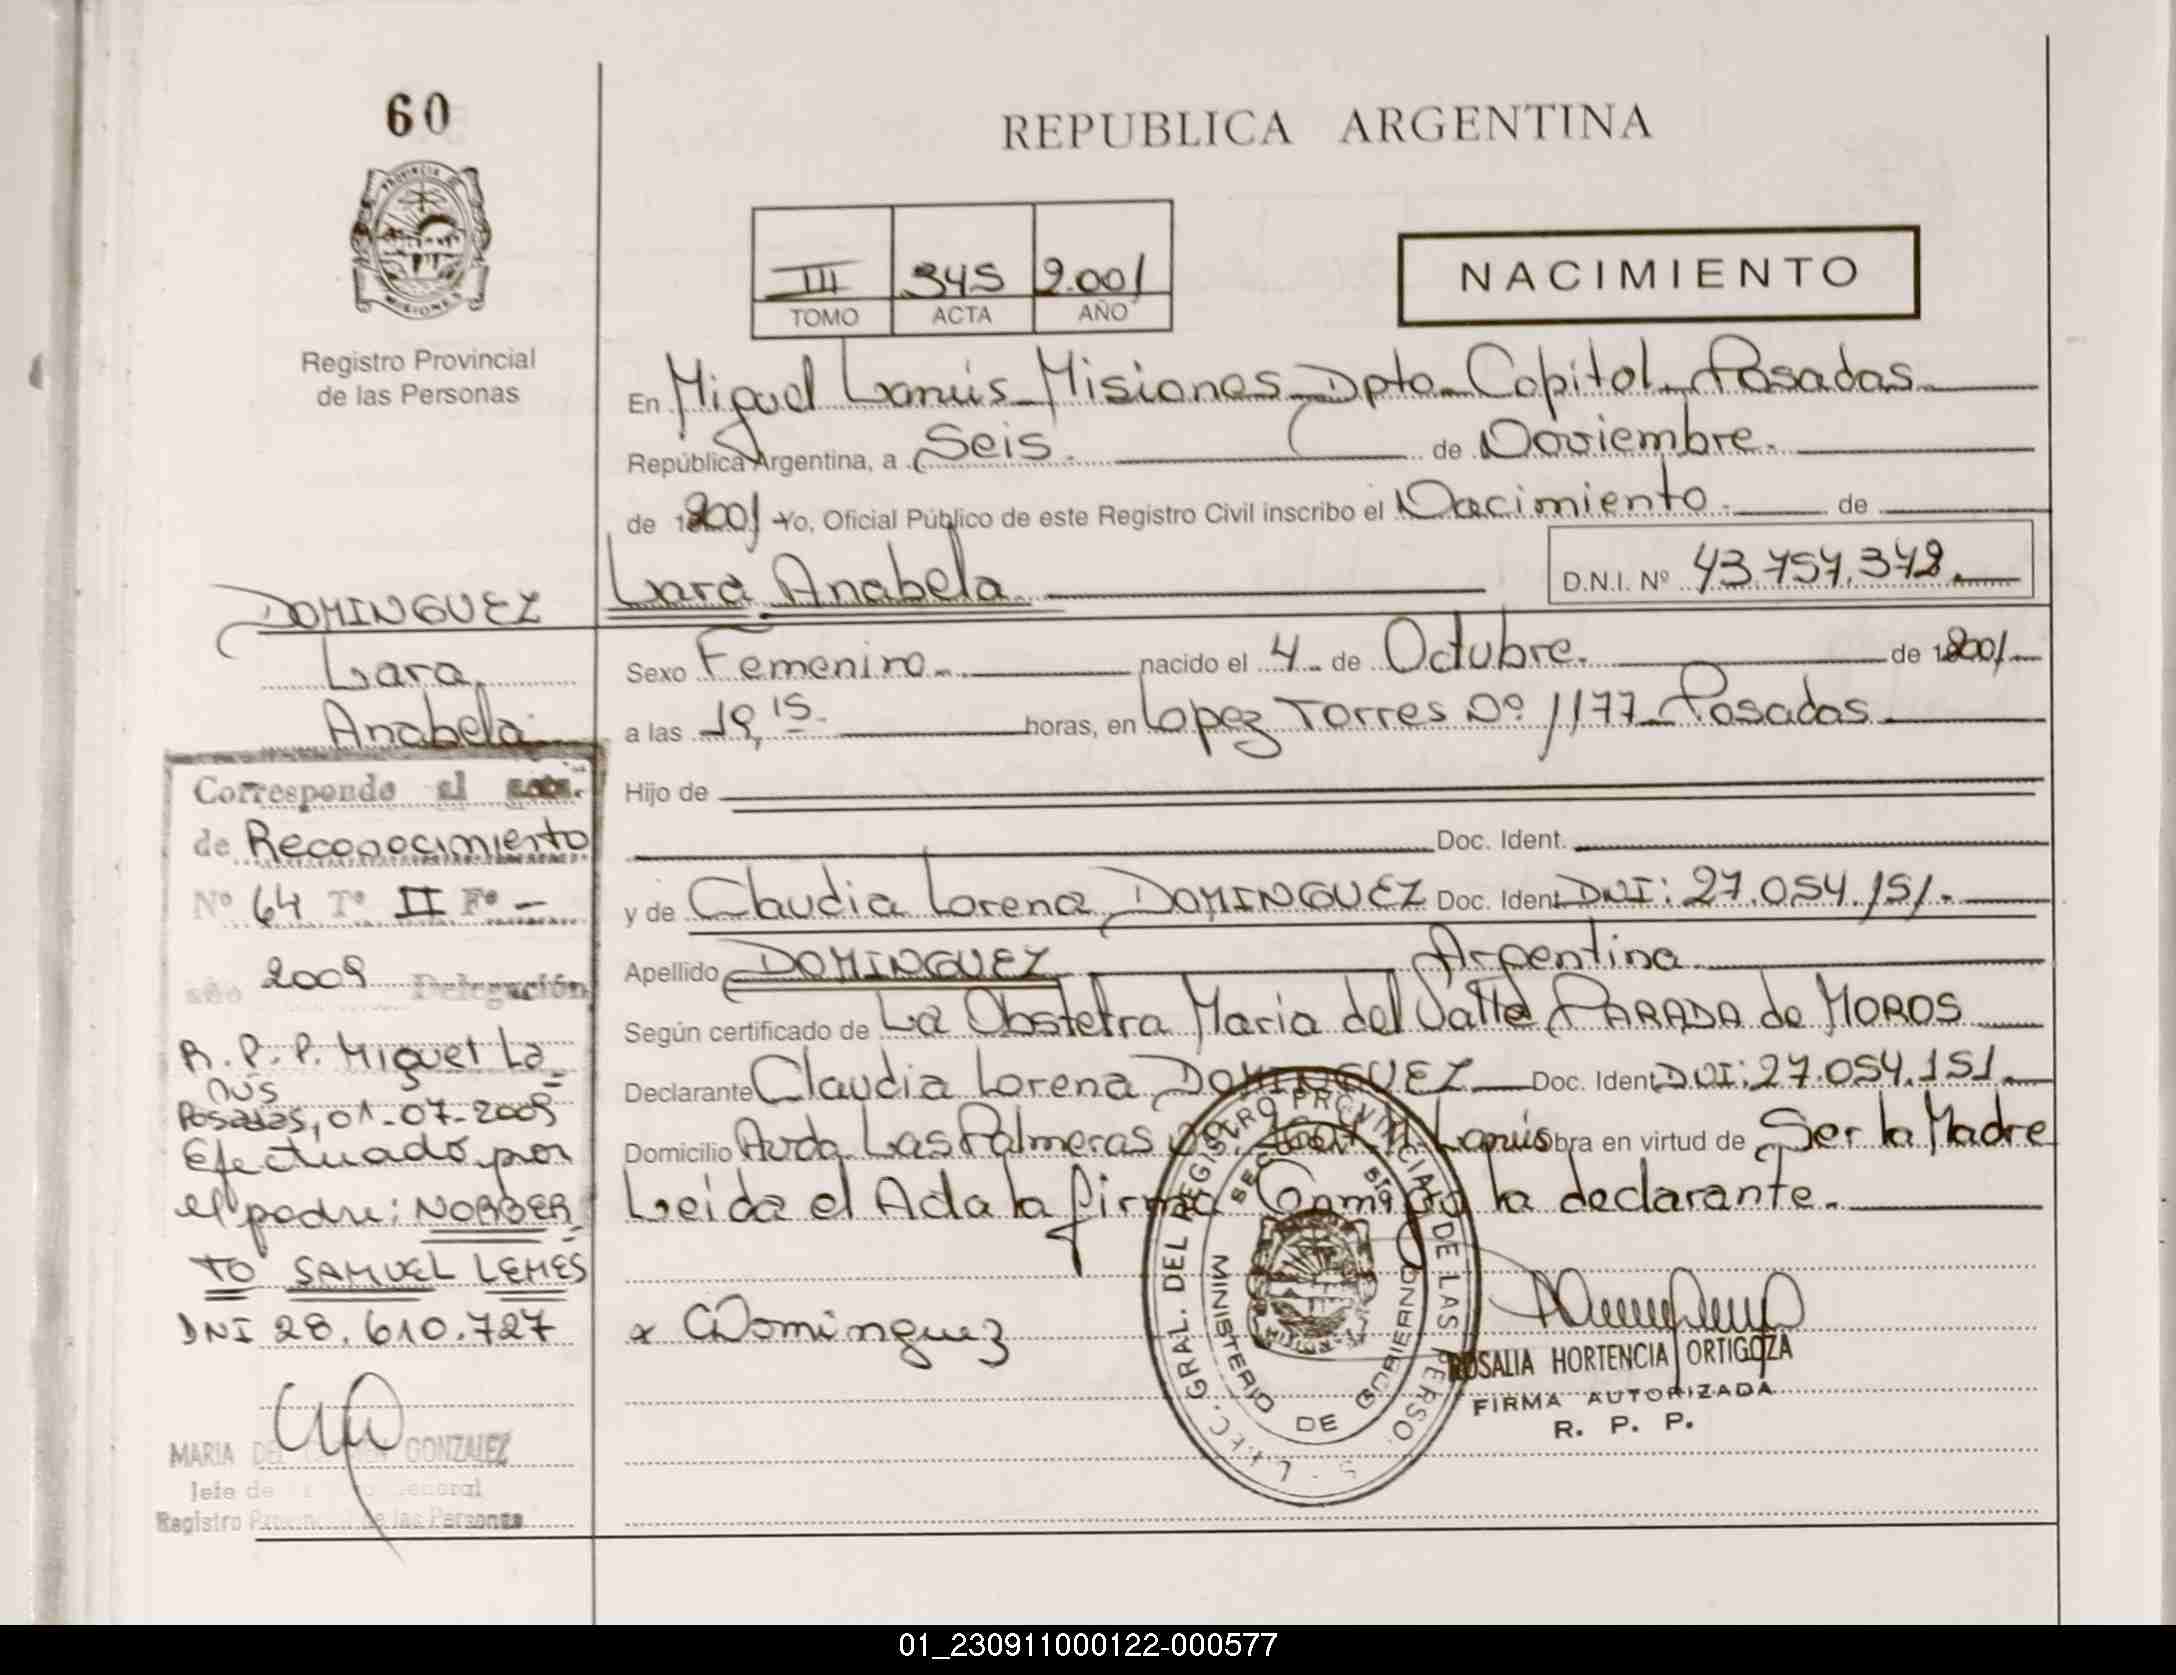 60
REPUBLICA ARGENTINA
PROVINCIA DE
MISIONES
Registro Provincial
de las Personas
III 345 2.001
TOMO ACTA AÑO
NACIMIENTO
En Miguel Lanús Misiones Dpto Capital Posadas
República Argentina, a Seis de Noviembre.
de 2001 Yo, Oficial Público de este Registro Civil inscribo el Nacimiento de
Lara Anabela
D.N.I. Nº 43.757.372.
DOMINGUEZ
Lara
Anabela
Sexo Femenino nacido el 4 de Octubre de 2001
a las 19,15 horas, en Lopez Torres Nº 1177 Posadas
Hijo de
Doc. Ident.
y de Claudia Lorena DOMINGUEZ Doc. Ident DNI: 27.054.151.
Apellido DOMINGUEZ Argentina
Según certificado de La Obstetra Maria del Valle PARADA de MOROS
Declarante Claudia Lorena DOMINGUEZ Doc. Ident DNI: 27.054.151
Domicilio Avda Las Palmeras M. Lanús obra en virtud de Ser la Madre
Leída el Acta la firma Conmigo la declarante.
Corresponde al acta.
de Reconocimiento
Nº 64 Tº II Fº -
año 2009 Delegación
R.P.P. Miguel La
nús
Posadas, 01-07-2009
Efectuado por
el padre: NORBER
TO SAMUEL LEMES
DNI 28.610.727
MARIA DEL CARMEN GONZALEZ
Jefe de General
Registro Provincial de las Personas
x CDominguez
GRAL. DEL REGISTRO PROVINCIAL DE LAS PERSO.
MINISTERIO DE GOBIERNO
ROSALIA HORTENCIA ORTIGOZA
FIRMA AUTORIZADA
R. P. P.
01_230911000122-000577